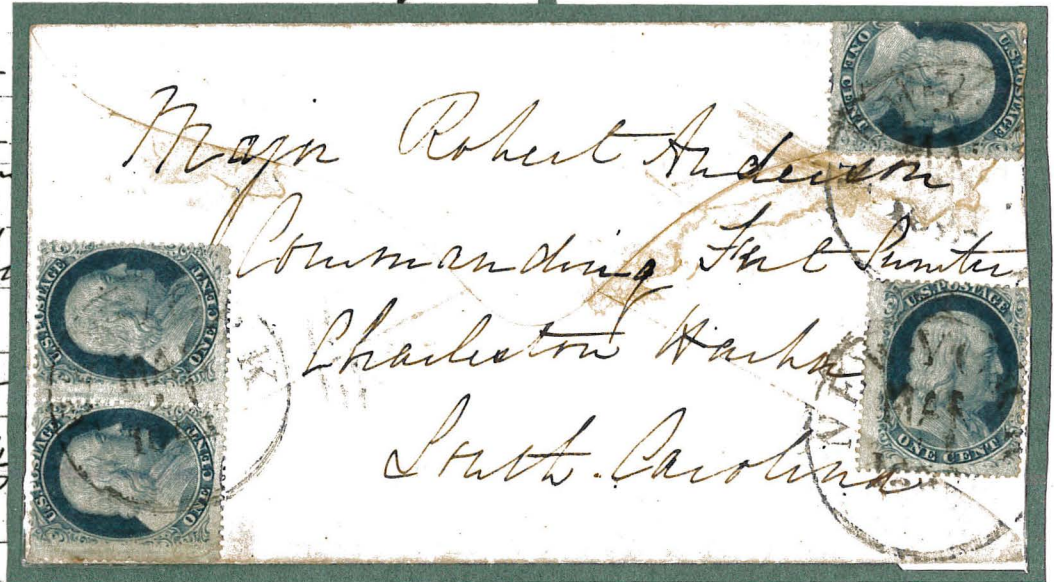 Major Robert Anderson
Commanding Fort Sumter
Charleston Harbor
South Carolina
U.S. POSTAGE
ONE CENT
U.S. POSTAGE
ONE CENT
U.S. POSTAGE
ONE CENT
U.S. POSTAGE
ONE CENT
NEW YO
K